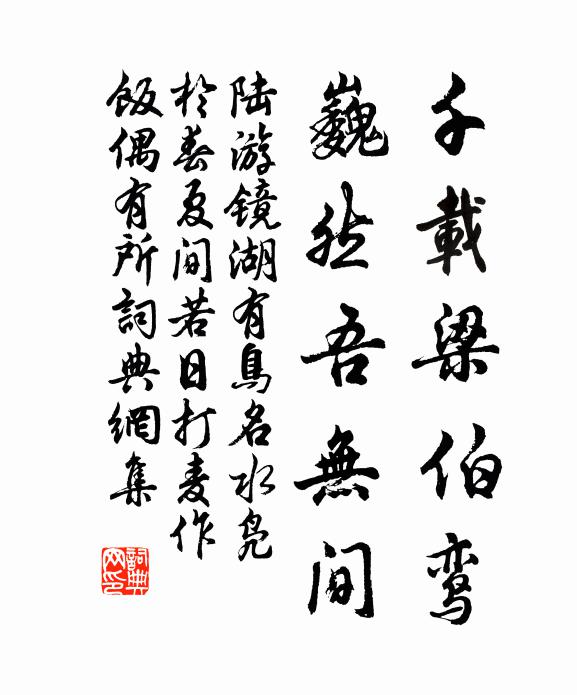 千載梁伯鸾
巍然吾無间
陆游镜湖有鳥名水凫
於春夏间若日打麦作
饭偶有所詞典網集
詞典
网印